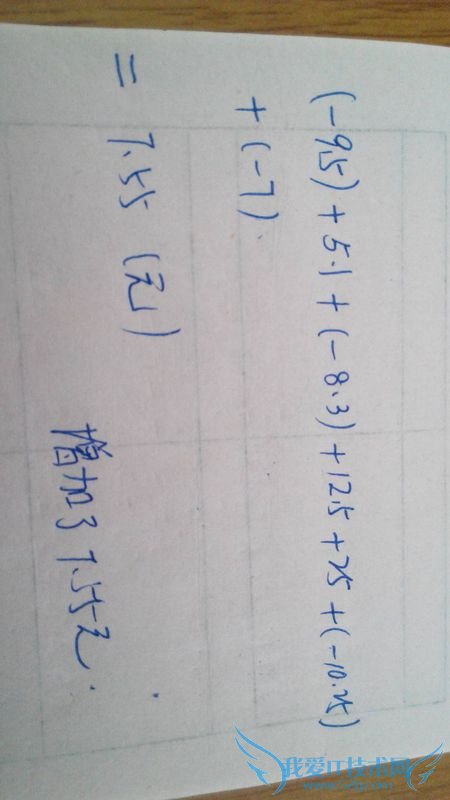 (-9.5)+5.1+(-8.3)+12.5+25+(-10.25)
+(-7).
= 7.55 (元)
增加了7.55元.
我爱IT技术网